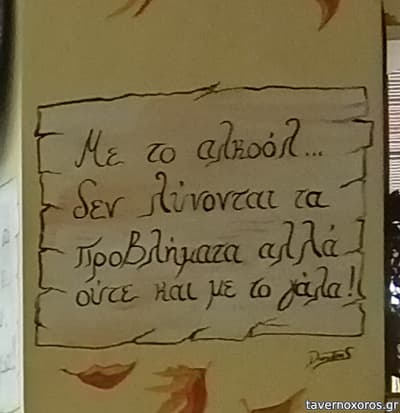 Με το αλκοόλ...
δεν λύνονται τα
προβλήματα αλλά
ούτε και με το γάλα!
tavernoxoros.gr